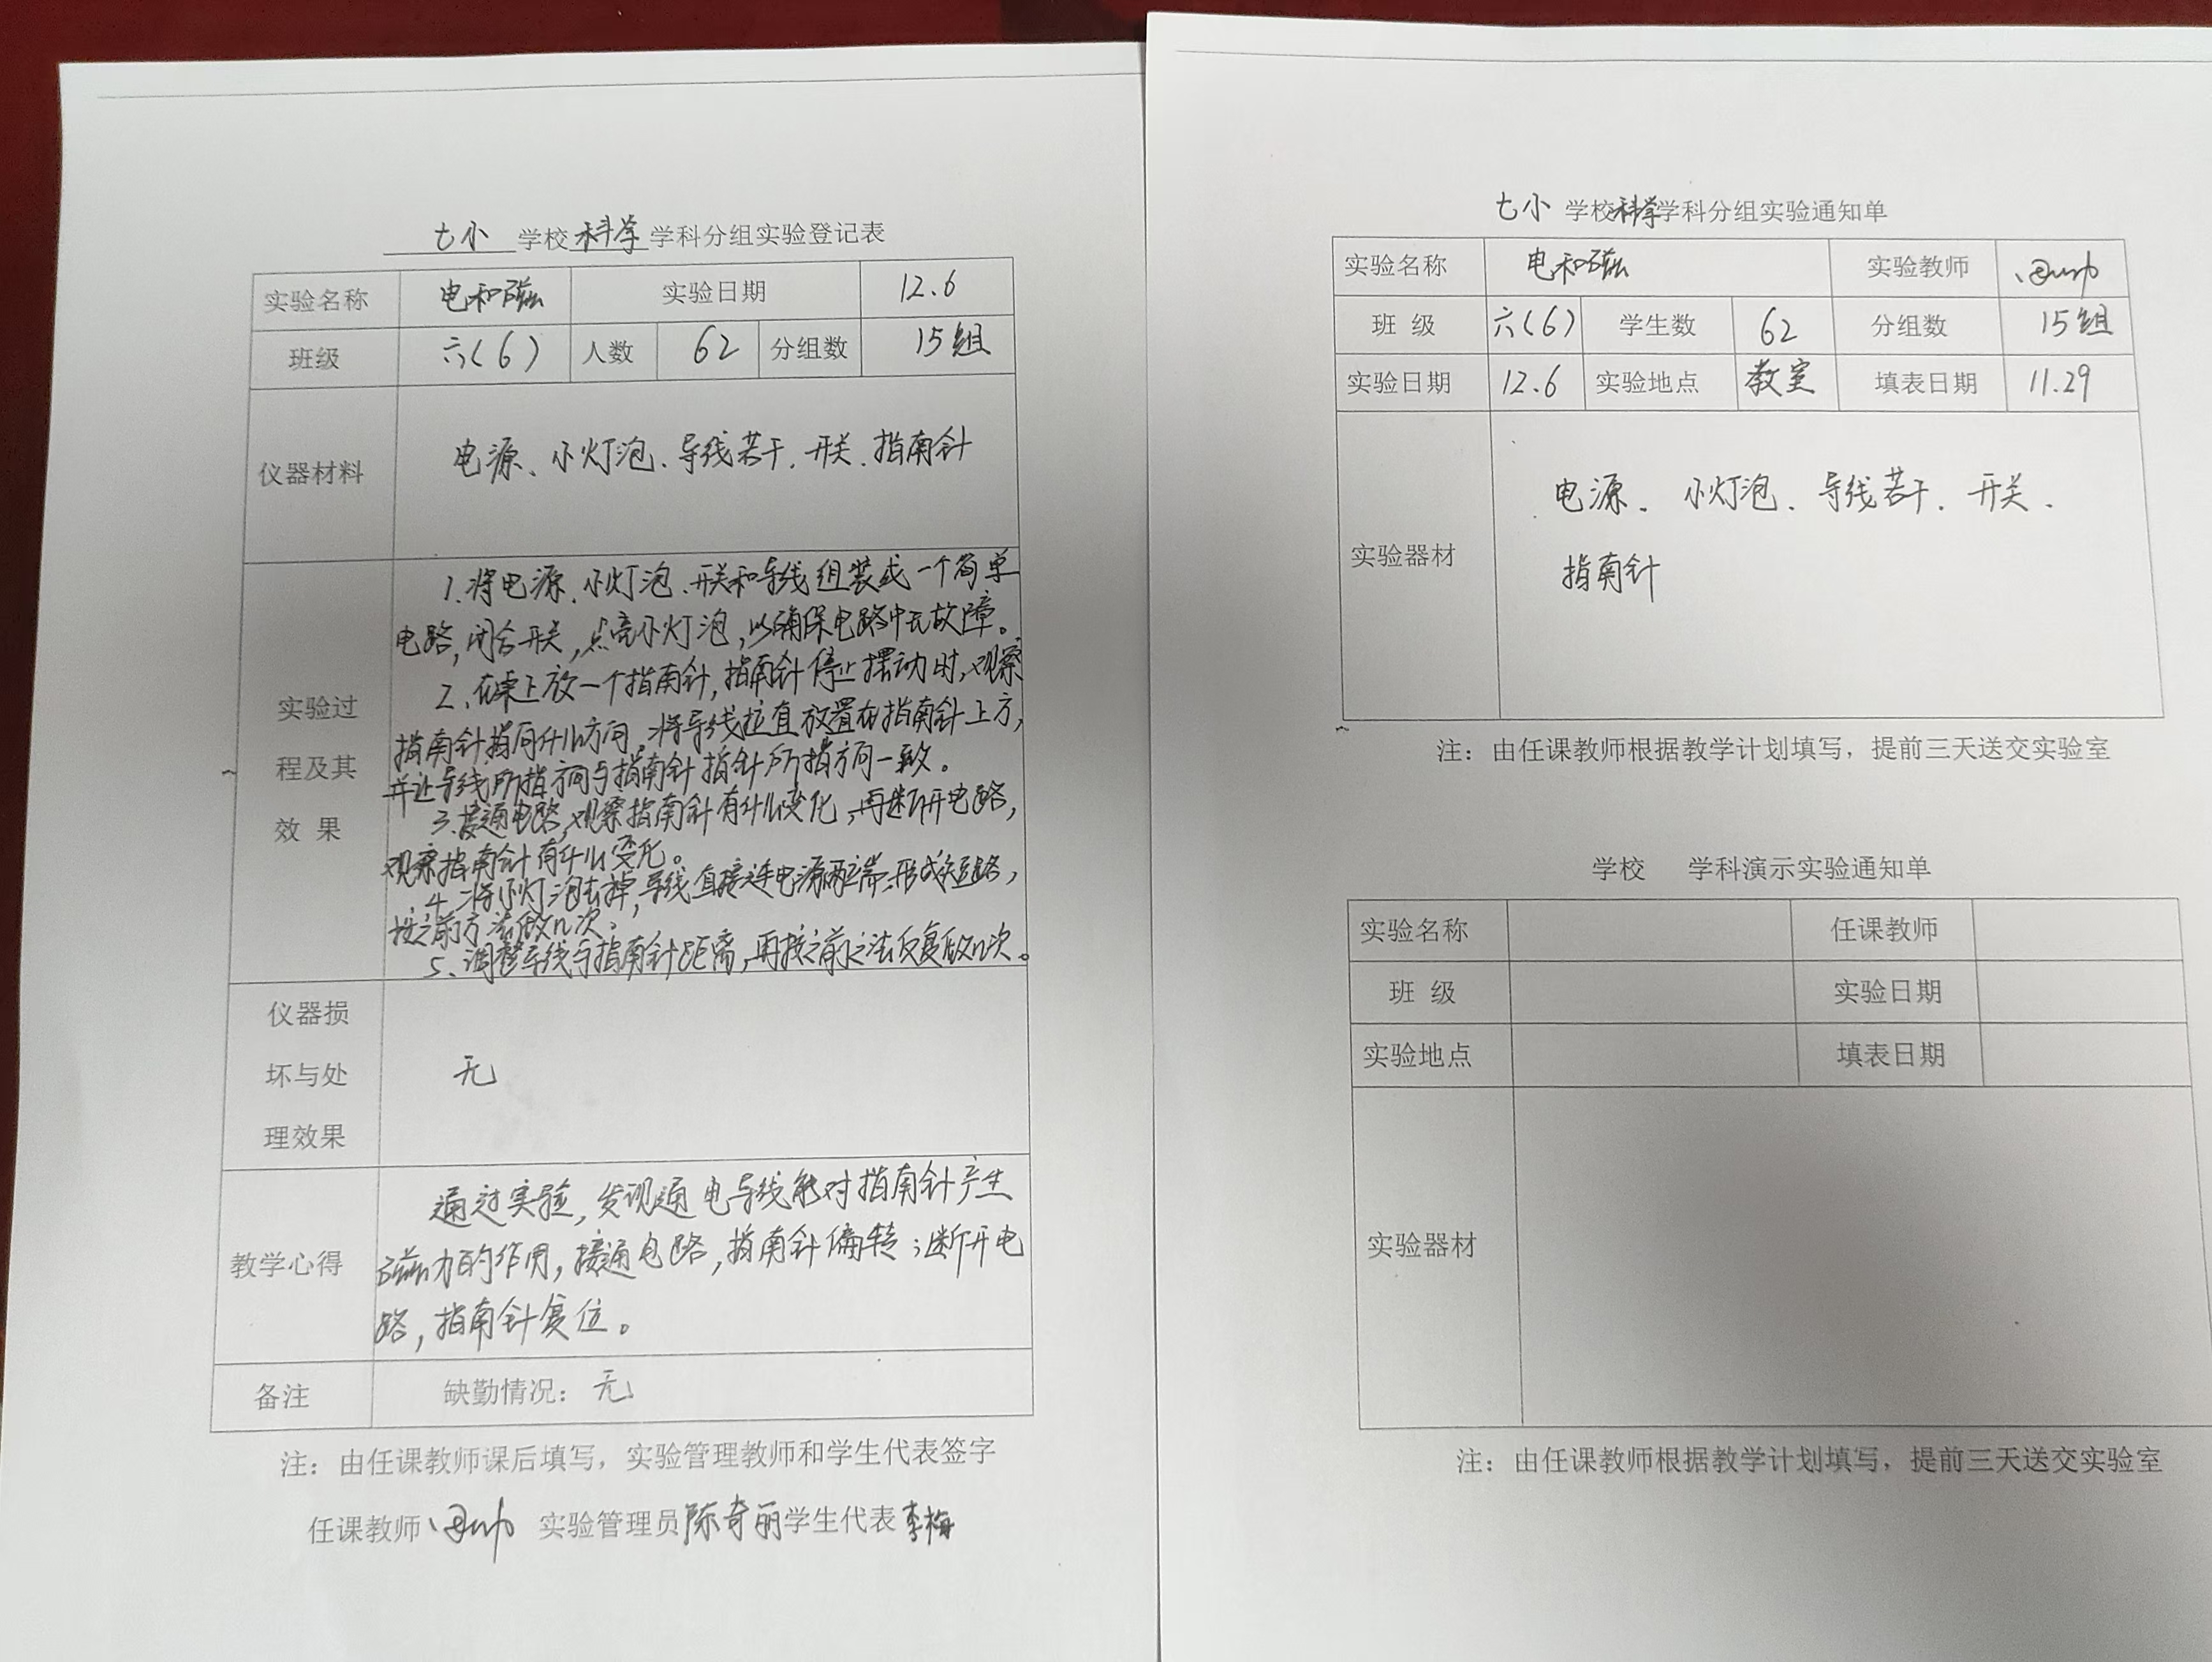 七小 学校 科学 学科分组实验登记表
实验名称 电和磁 实验日期 12.6
班级 六(6) 人数 62 分组数 15组
仪器材料 电源、小灯泡、导线若干、开关、指南针
实验过
程及其
效 果
1.将电源、小灯泡、开关和导线组装成一个简单
电路,闭合开关,点亮小灯泡,以确保电路中无故障。
2、在桌上放一个指南针,指南针停止摆动时,观察
指南针指向什么方向,将导线拉直放置在指南针上方,
并让导线所指方向与指南针指针所指方向一致。
3.接通电路,观察指南针有什么变化,再断开电路,
观察指南针有什么变化。
4.将小灯泡去掉,导线直接连电源两端,形成短路,
按之前方法做几次。
5、调整导线与指南针距离,再按之前之法反复做几次。
仪器损
坏与处
理效果
无
教学心得
通过实验,发现通电导线能对指南针产生
磁力的作用,接通电路,指南针偏转;断开电
路,指南针复位。
备注 缺勤情况:无
注:由任课教师课后填写,实验管理教师和学生代表签字
任课教师 实验管理员 陈奇丽 学生代表 李梅
七小 学校 科学 学科分组实验通知单
实验名称 电和磁 实验教师
班 级 六(6) 学生数 62 分组数 15组
实验日期 12.6 实验地点 教室 填表日期 11.29
实验器材
电源、小灯泡、导线若干、开关、
指南针
注:由任课教师根据教学计划填写,提前三天送交实验室
学校 学科演示实验通知单
实验名称 任课教师
班 级 实验日期
实验地点 填表日期
实验器材
注:由任课教师根据教学计划填写,提前三天送交实验室